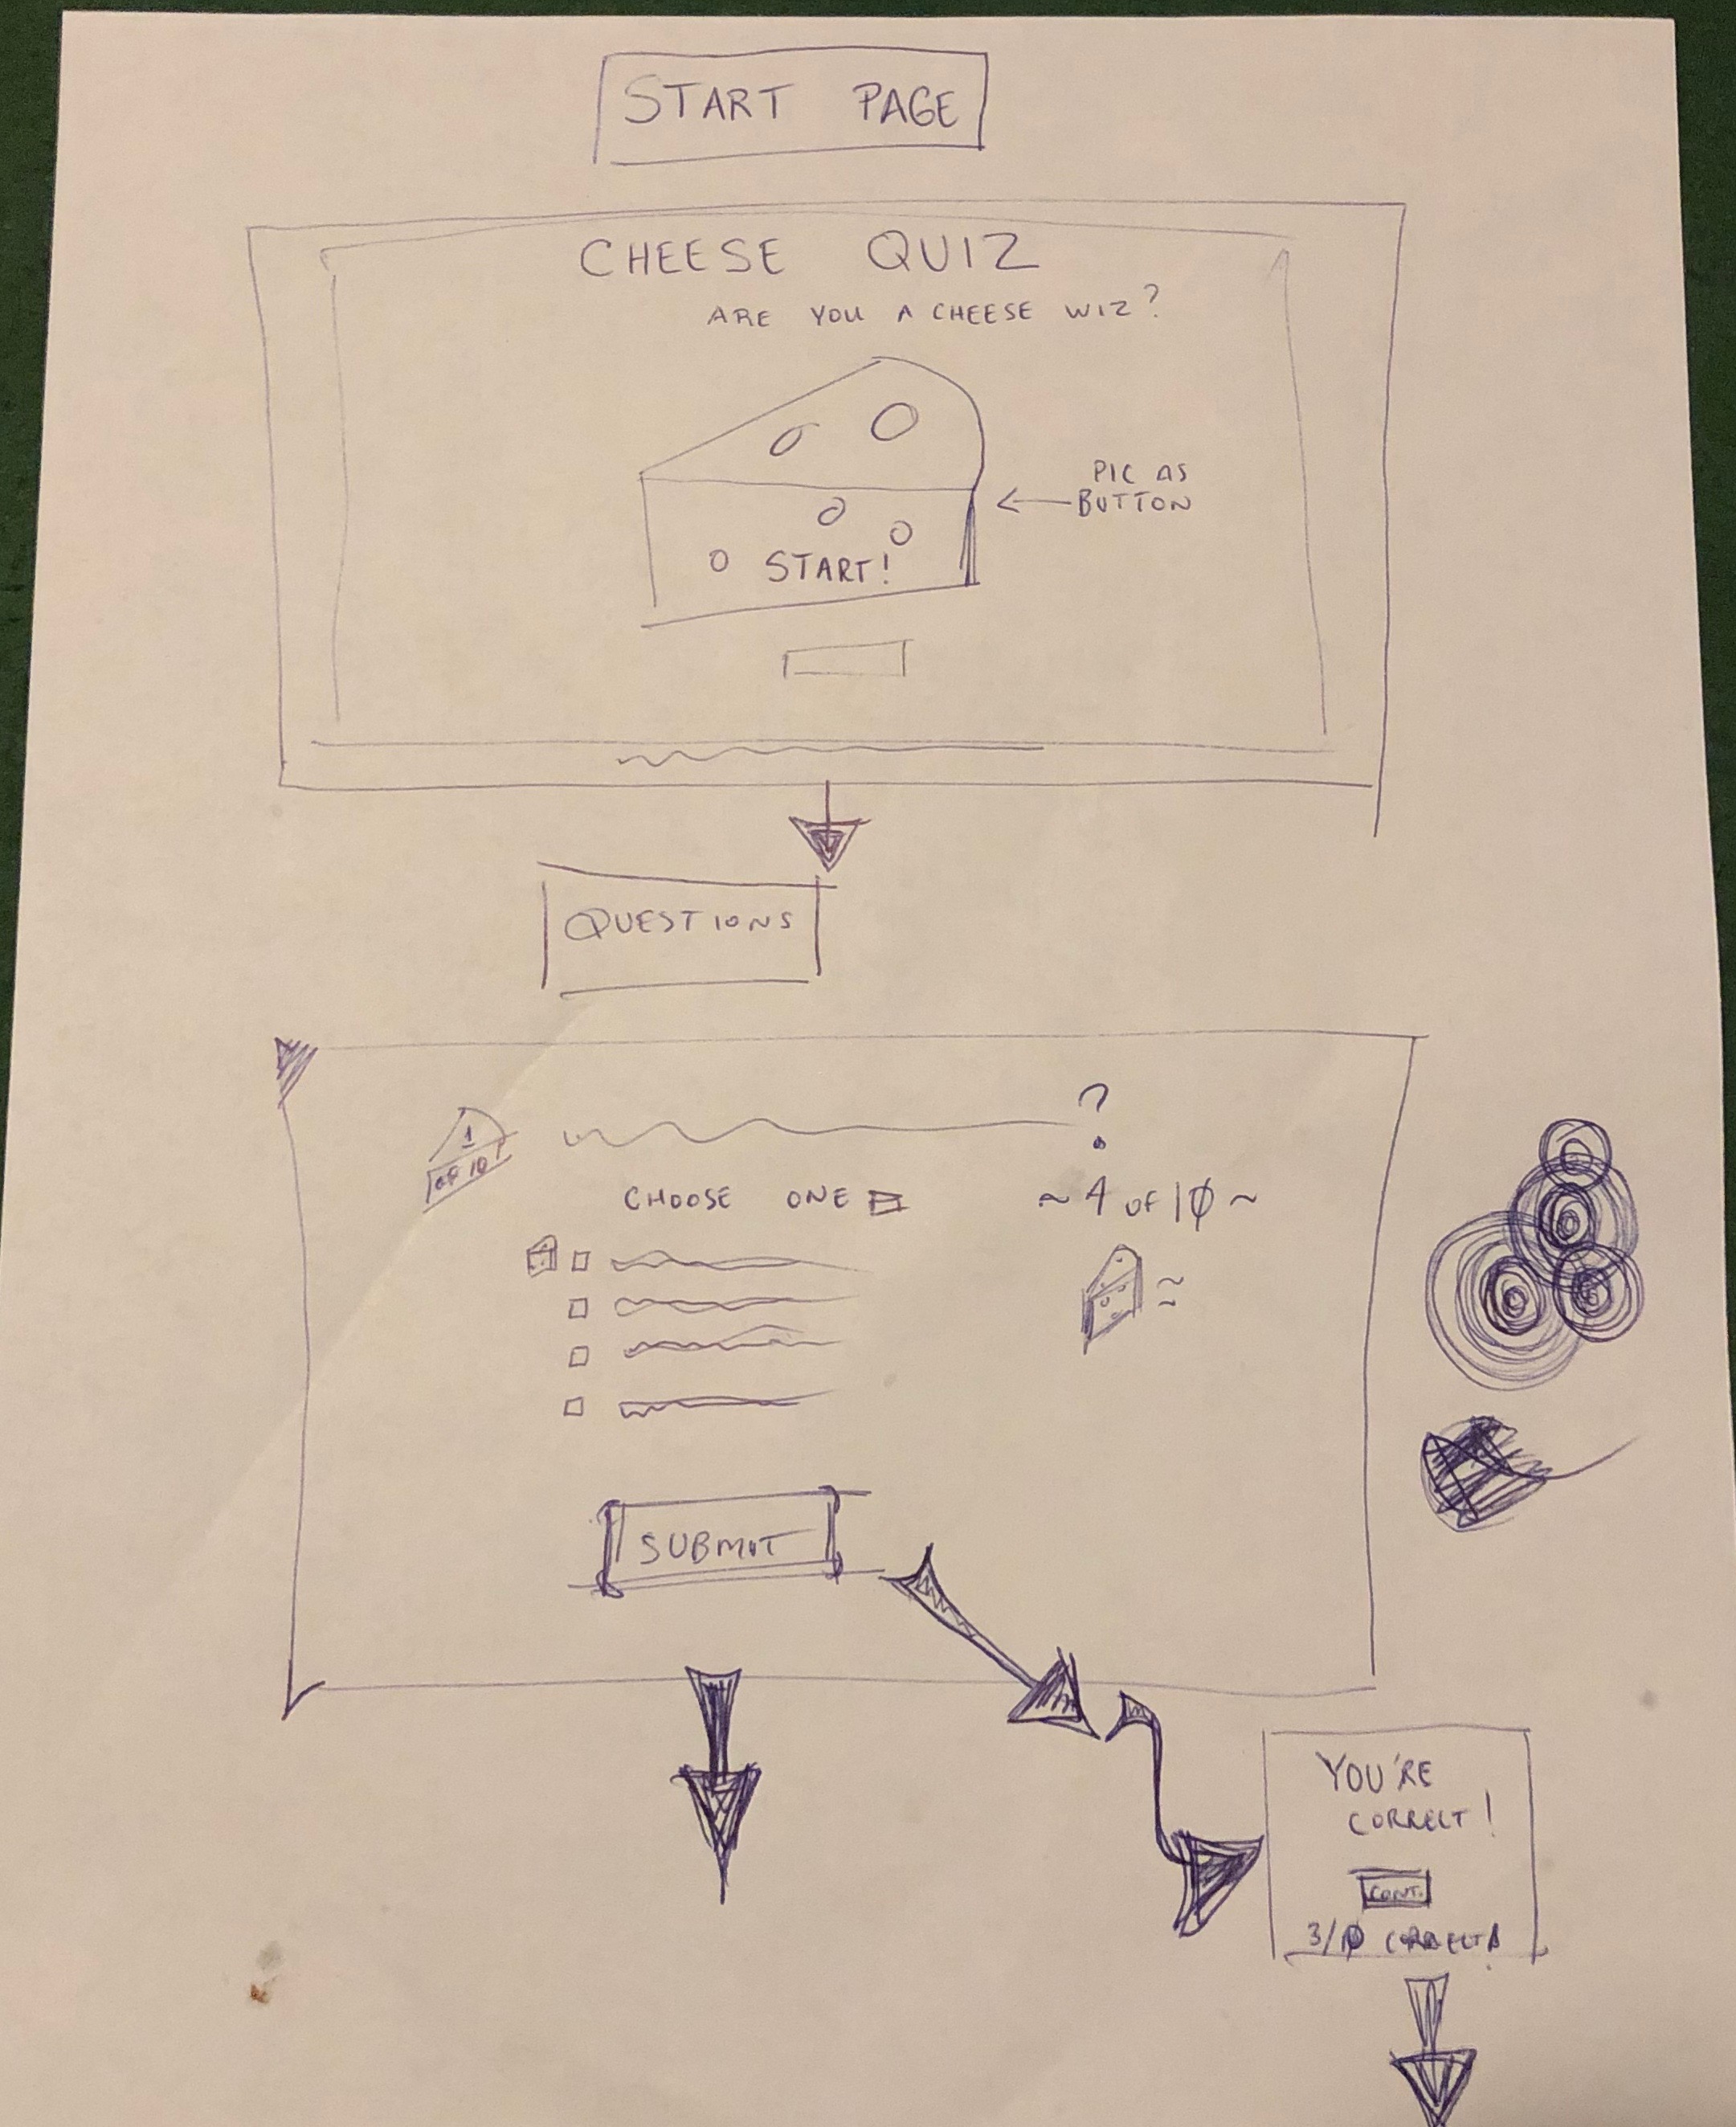 START PAGE
CHEESE QUIZ
ARE YOU A CHEESE WIZ?
PIC AS
BUTTON
START!
QUESTIONS
?
1
OF 10
CHOOSE ONE
~ 4 OF 10 ~
SUBMIT
YOU'RE
CORRECT!
CONT.
3/10 CORRECT